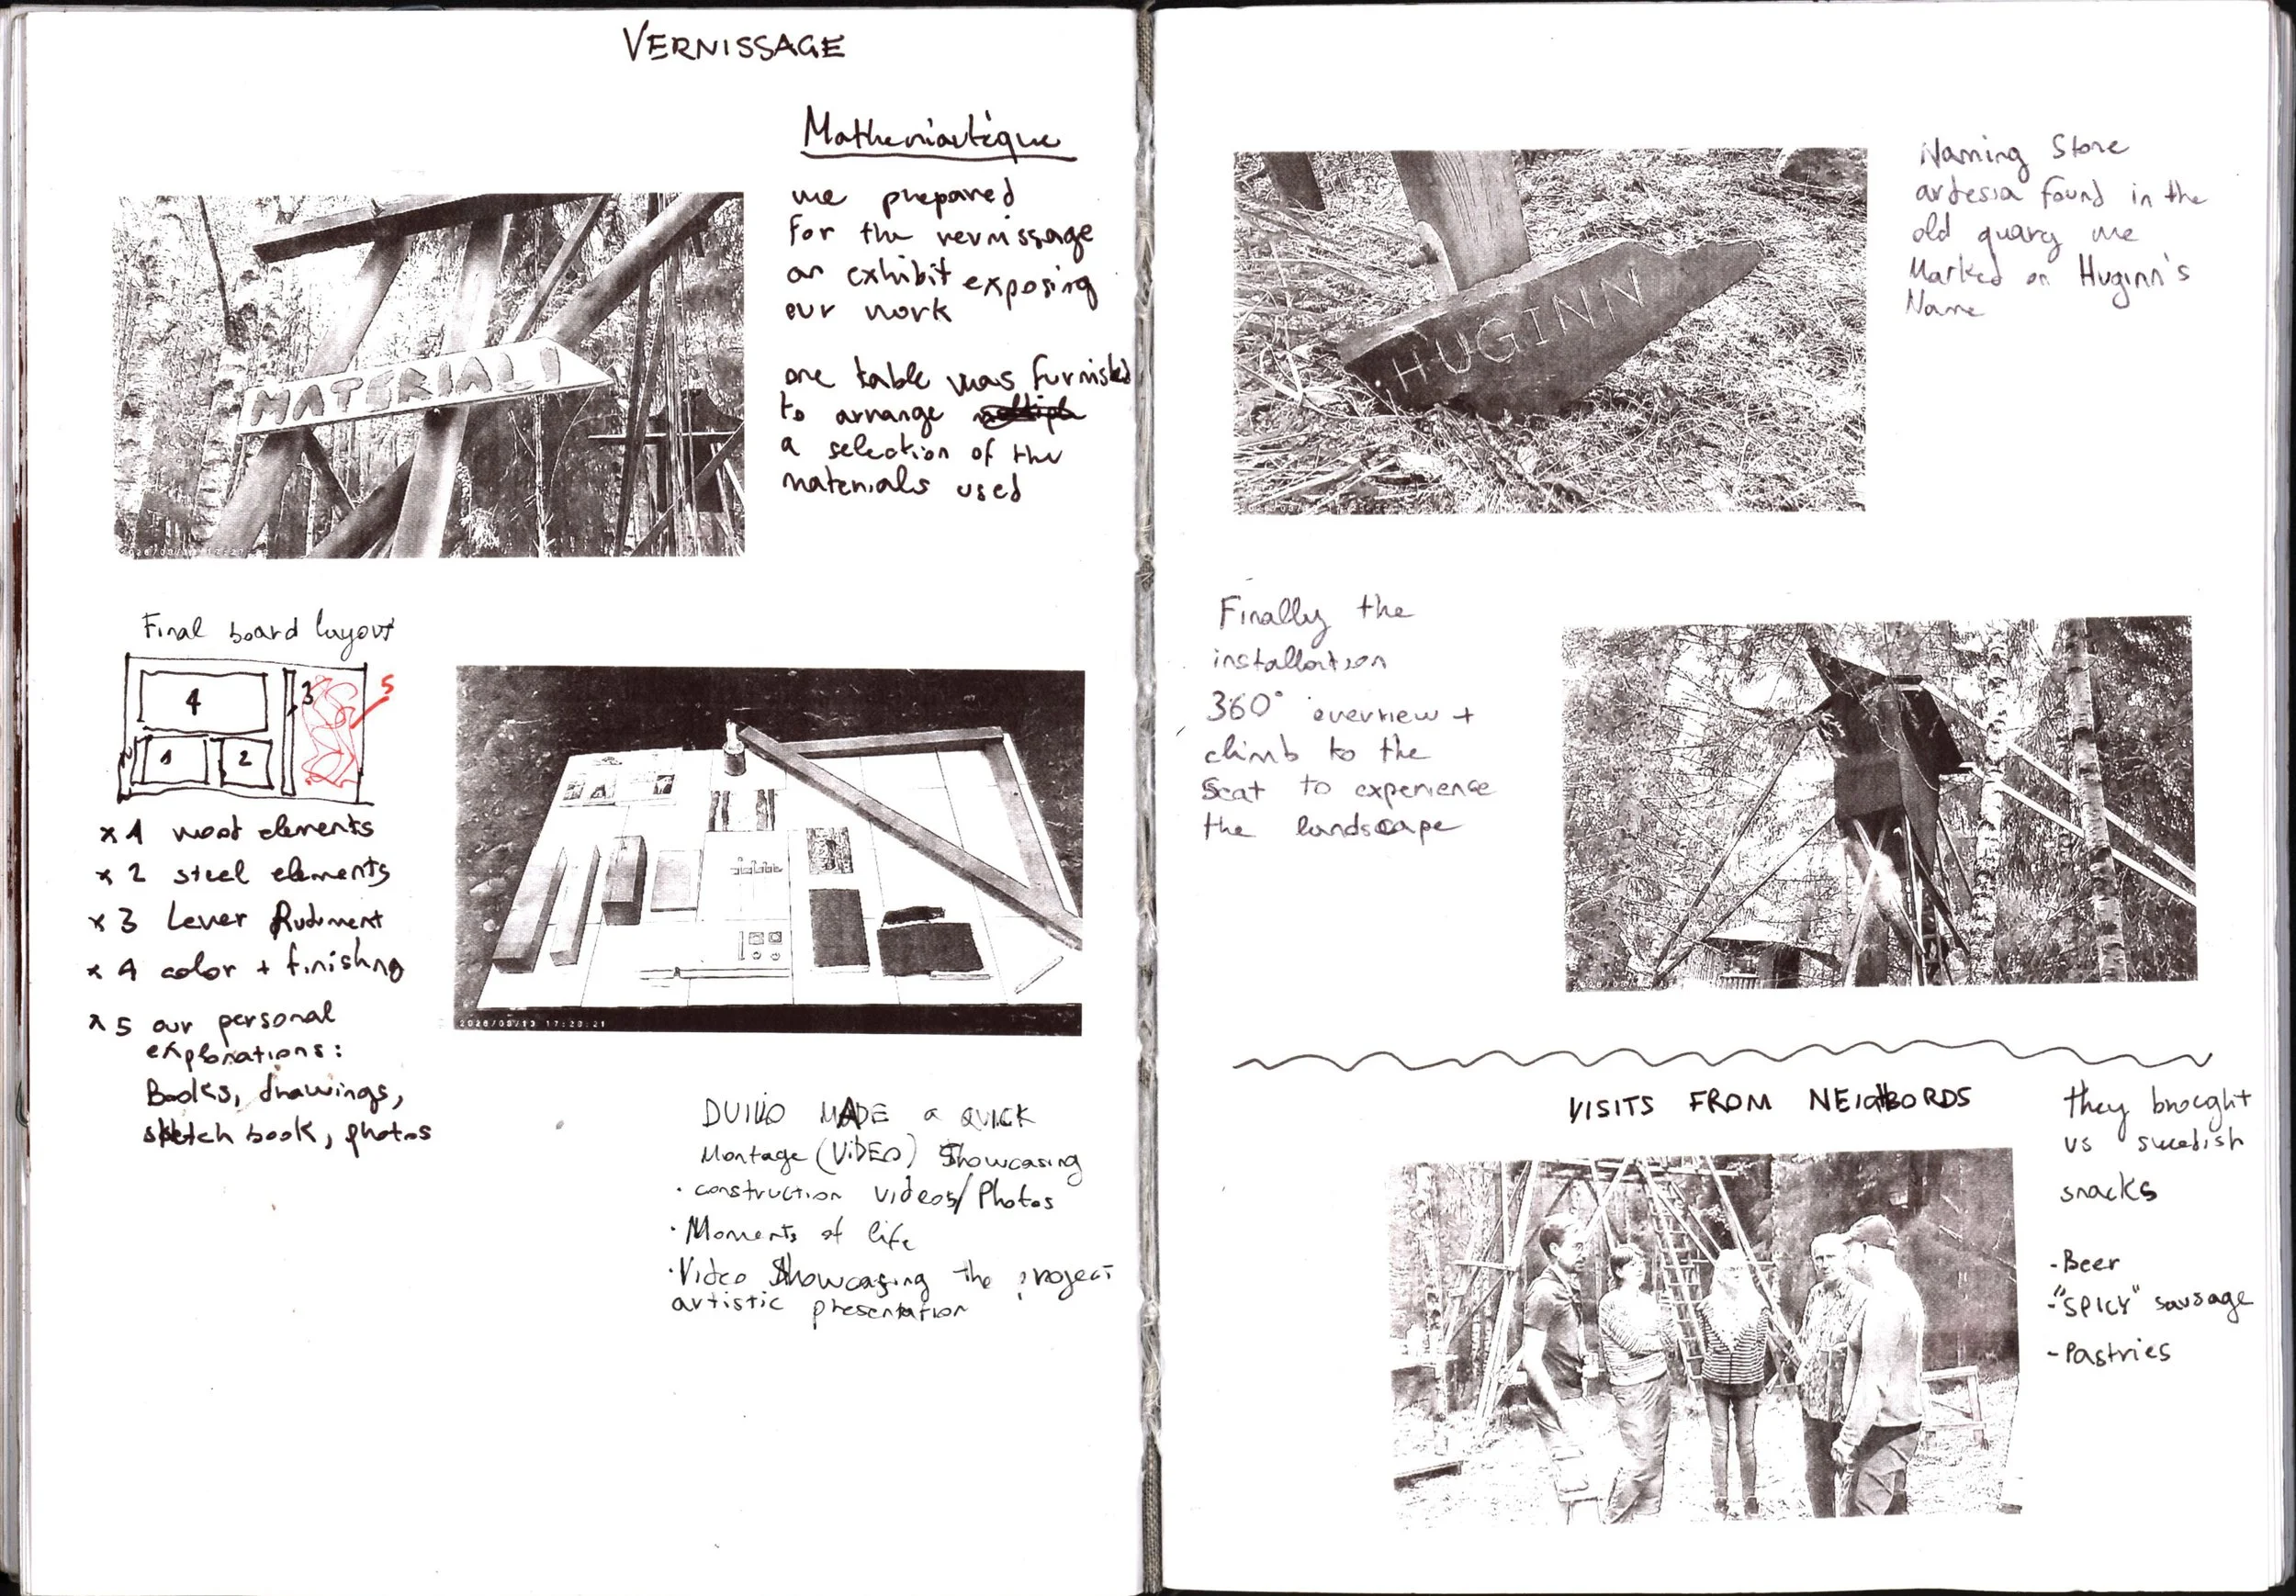 VERNISSAGE
Matheriautèque
we prepared
for the vernissage
an exhibit exposing
our work
one table was furnished
to arrange
a selection of the
materials used
MATERIALI
Final board layout
4
3
5
1
2
x 1 wood elements
x 2 steel elements
x 3 Lever Rudiment
x 4 color + finishing
x 5 our personal
explorations:
Books, drawings,
sketch book, photos
2026/08/13 17:28:21
DUILIO MADE a QUICK
Montage (VIDEO) Showcasing
· construction videos/Photos
· Moments of life
· Video Showcasing the project
artistic presentation
HUGINN
Naming Stone
ardesia found in the
old quary we
Marked on Huginn's
Name
Finally the
installation
360° overview +
climb to the
Seat to experience
the landscape
VISITS FROM NEIGHBORDS
they brought
us swedish
snacks
- Beer
- "SPICY" sausage
- Pastries